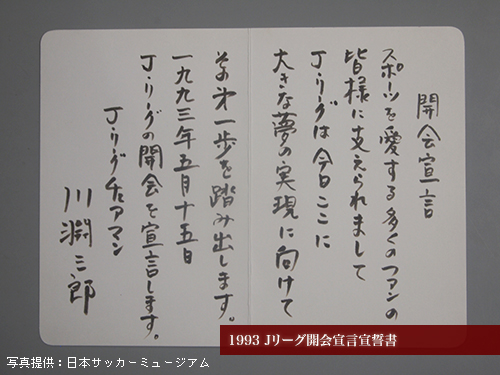 開会宣言
スポーツを愛する多くのファンの
皆様に支えられまして
Jリーグは今日ここに
大きな夢の実現に向けて
その第一歩を踏み出します。
一九九三年五月十五日
Jリーグの開会を宣言します。
Jリーグチェアマン
川淵三郎
1993 Jリーグ開会宣言宣誓書
写真提供：日本サッカーミュージアム